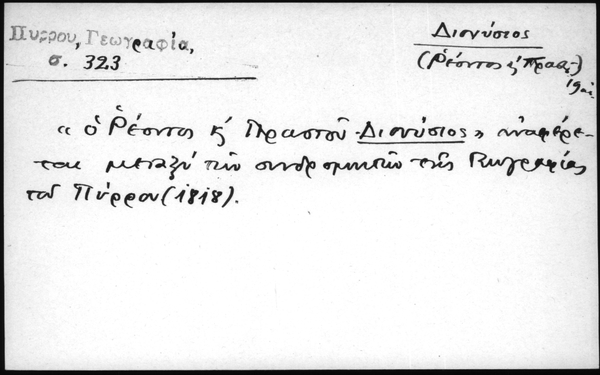 Πύρρου, Γεωγραφία,
σ. 323
Διονύσιος
(Ῥέοντος κ̓ Πραστ.)
19αι.
« ὁ Ῥέοντος κ̓ Πραστοῦ Διονύσιος » ἀναφέρε-
ται μεταξύ τῶν συνδρομητῶν τῆς Γεωγραφίας
τοῦ Πύρρου (1818).